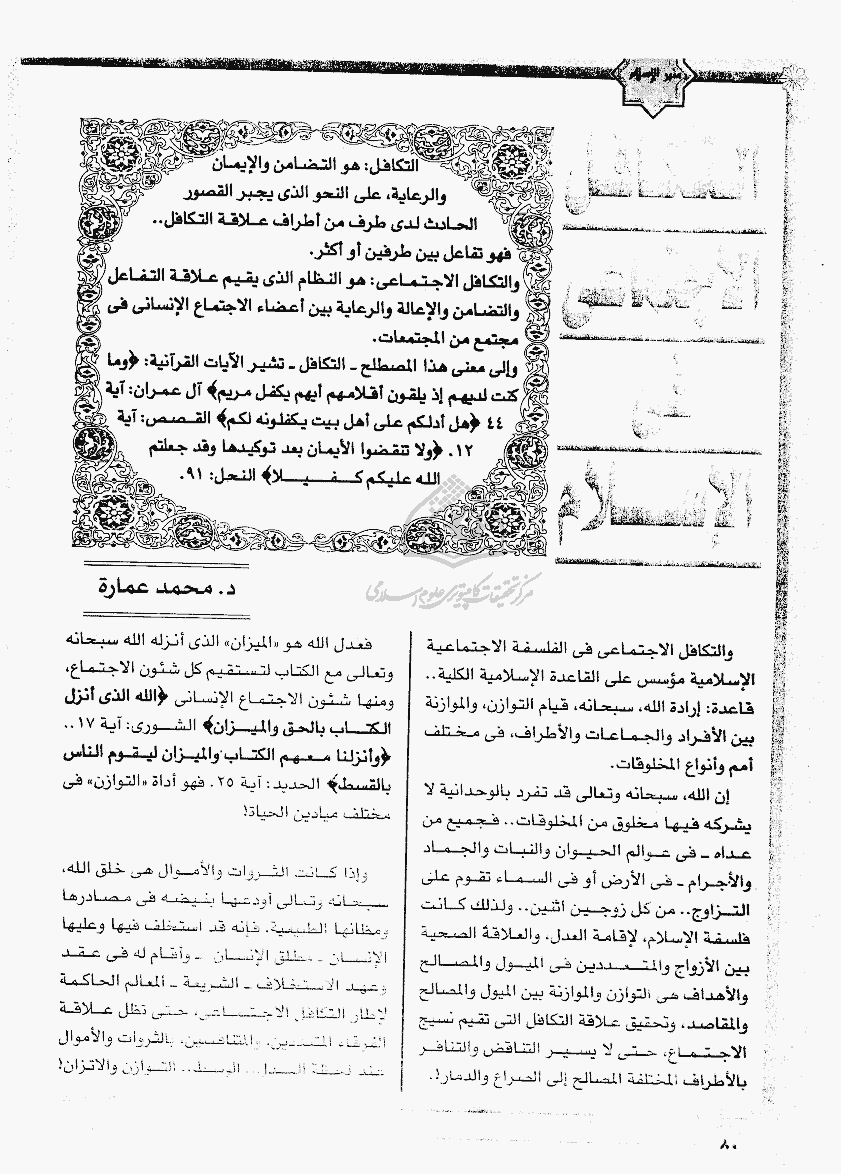 منبر الإسلام
التكافل
الاجتماعى
فى
الإسلام
التكافل: هو التضامن والإيمان
والرعاية، على النحو الذى يجبر القصور
الحادث لدى طرف من أطراف علاقة التكافل..
فهو تفاعل بين طرفين أو أكثر.
والتكافل الاجتماعى: هو النظام الذى يقيم علاقة التفاعل
والتضامن والإعالة والرعاية بين أعضاء الاجتماع الإنسانى فى
مجتمع من المجتمعات.
وإلى معنى هذا المصطلح ـ التكافل ـ تشير الآيات القرآنية: ﴿وما
كنت لديهم إذ يلقون أقلامهم أيهم يكفل مريم﴾ آل عمران: آية
٤٤ ﴿هل أدلكم على أهل بيت يكفلونه لكم﴾ القصص: آية
١٢. ﴿ولا تنقضوا الأيمان بعد توكيدها وقد جعلتم
الله عليكم كفيلا﴾ النحل: ٩١.
د. محمد عمارة
مركز تحقيقات كامپيوترى علوم اسلامى
والتكافل الاجتماعى فى الفلسفة الاجتماعية
الإسلامية مؤسس على القاعدة الإسلامية الكلية..
قاعدة: إرادة الله، سبحانه، قيام التوازن، والموازنة
بين الأفراد والجماعات والأطراف، فى مختلف
أمم وأنواع المخلوقات.
إن الله، سبحانه وتعالى قد تفرد بالوحدانية لا
يشركه فيها مخلوق من المخلوقات.. فجميع من
عداه ـ فى عوالم الحيوان والنبات والجماد
والأجرام ـ فى الأرض أو فى السماء تقوم على
التزاوج.. من كل زوجين اثنين.. ولذلك كانت
فلسفة الإسلام، لإقامة العدل، والعلاقة الصحية
بين الأزواج والمتعددين فى الميول والمصالح
والأهداف هى التوازن والموازنة بين الميول والمصالح
والمقاصد، وتحقيق علاقة التكافل التى تقيم نسيج
الاجتماع، حتى لا يسير التناقض والتنافر
بالأطراف المختلفة المصالح إلى الصراع والدمار!.
فعدل الله هو «الميزان» الذى أنزله الله سبحانه
وتعالى مع الكتاب لتستقيم كل شئون الاجتماع،
ومنها شئون الاجتماع الإنسانى ﴿الله الذى أنزل
الكتاب بالحق والميزان﴾ الشورى: آية ١٧..
﴿وأنزلنا معهم الكتاب والميزان ليقوم الناس
بالقسط﴾ الحديد: آية ٢٥. فهو أداة «التوازن» فى
مختلف ميادين الحياة!
وإذا كانت الثروات والأموال هى خلق الله،
سبحانه وتعالى أودعها بفيضه فى مصادرها
ومظانها الطبيعية، فإنه قد استخلف فيها وعليها
الإنسان ـ مطلق الإنسان ـ وأقام له فى عقد
وعهد الاستخلاف ـ الشريعة ـ المعالم الحاكمة
لإطار التكافل الاجتماعى، حتى تظل علاقة
الفرقاء المتعددين، والمتنافسين، بالثروات والأموال
عند لحظة العدل... الوسط.. التوازن والاتزان!
٨٠